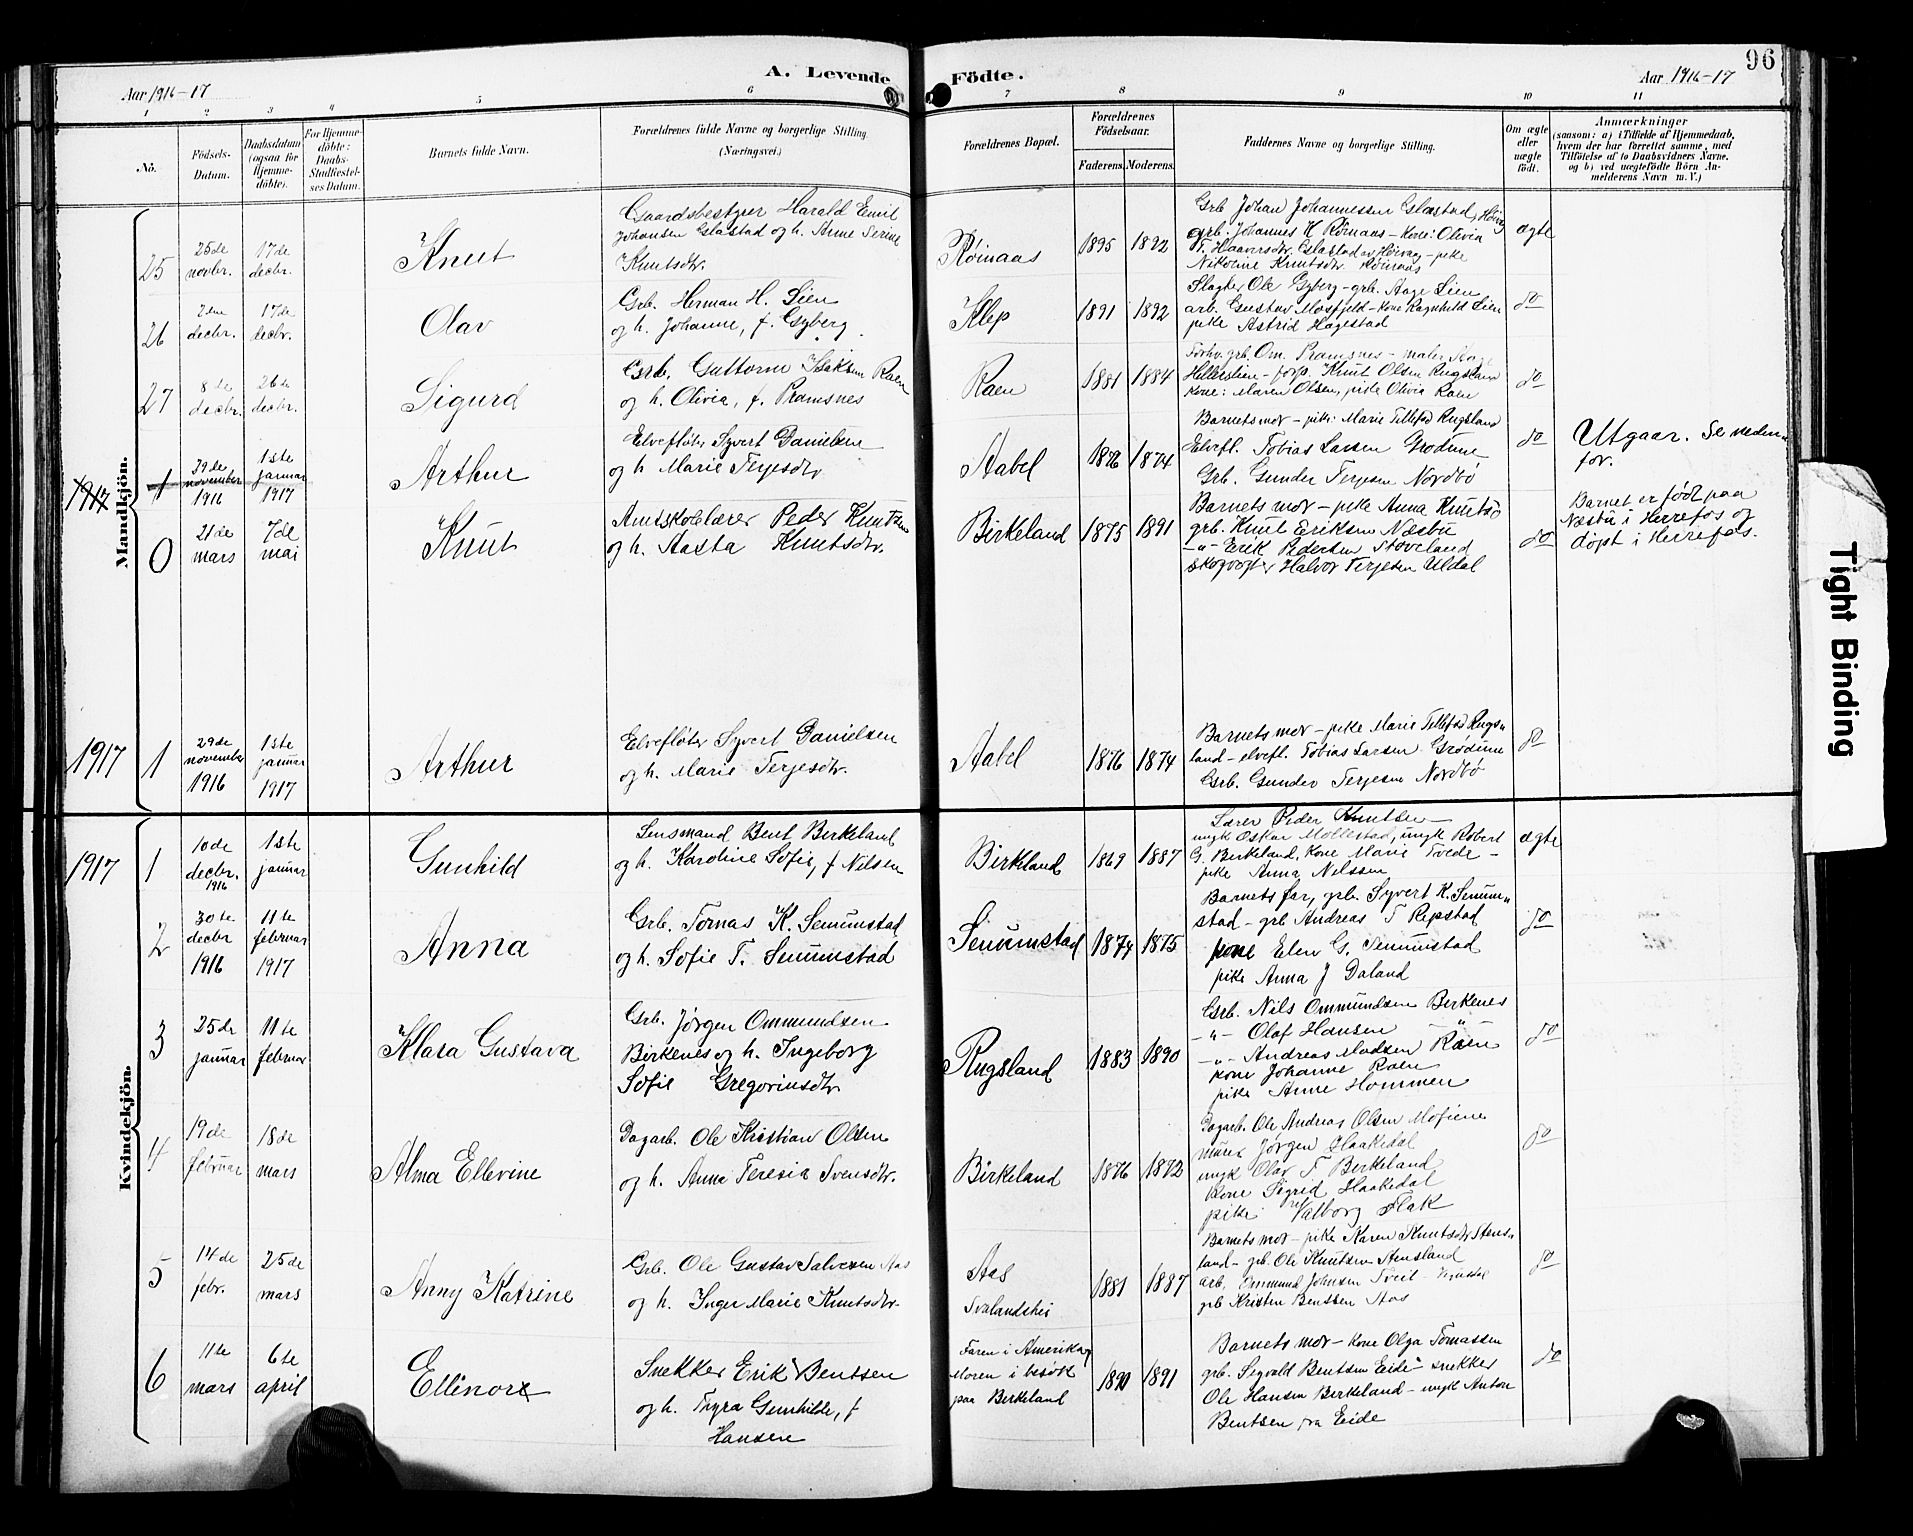 96
A. Levende Födte.
Aar 1916-17
Aar 1916-17
1 2 3 4 5 6 7 8 9 10 11
No.
Födsels-Datum.
Daabsdatum (ogsaa for Hjemmedöbte).
For Hjemmedöbte: Daabs-Stadfæstelses Datum.
Barnets fulde Navn.
Forældrenes fulde Navne og borgerlige Stilling. (Næringsvei.)
Forældrenes Bopæl.
Forældrenes Födselsaar.
Faderens. Moderens.
Faddernes Navne og borgerlige Stilling.
Om ægte eller uægte födt.
Anmærkninger
(saasom: a) i Tilfælde af Hjemmedaab,
hvem der har forrettet samme, med
Tilföielse af to Daabsvidners Navne.
og b) ved uægtefödte Börn An-
melderens Navn m. V.)
Mandkjön.
25
25de novbr.
17de decbr.
Knut
Gaardsbestyrer Harald Emil
Johansen Glastad og h. Anne Serine
Knutsdtr.
Röinaas
1895 1892
Grb Johan Johannessen Glastad, Höivag
grb. Johannes K Römaas - Kone: Olivia
T. Haaversdtr. Glastad av Höivag - pike
Nikoline Knutsdtr. Röinaas
ægte
26
2den decbr.
17de decbr.
Olav
Grb. Herman H. Lien
og h. Johanne, f. Gyberg.
Klep
1891 1892
Slagter Ole Gyberg - grb. Aage Lien
arb. Gustav Mosfjeld - kone Ragnhild Lien
pike Astrid Hagestad
do
27
8de decbr.
26de decbr.
Sigurd
Grb. Guttorm Isaksen Raen
og h. Olivia, f. Pramsnes
Raen
1881 1884
Forhv. grb. Om. Pramsnes - maler Aage
Hellerslien - forp. Knut Olsen Rugsland
kone: Maren Olsen, pike Olivia Raen
do
1917
1
29de november 1916
1ste januar 1917
Arthur
Elvefløter Syvert Danielsen
og h. Marie Terjesdtr
Aabel
1876 1874
Barnets mor - pike: Marie Tellefsd Rugsland
Elvefl. Tobias Larsen Grødum
Grb. Gunder Terjesen Nordbø
do
Utgaar. Se neden-
for.
0
21de mars
7de mai
Knut
Amtskolelærer Peder Knutsen
og h. Aasta Knutsdtr.
Birkeland
1875 1891
Barnets mor - pike Anna Knutsd
grb. Knut Eriksen Næsbu
-"- Erik Pedersen Støveland
skogvogter Halvor Terjesen Uldal
do
Barnet er født paa
Næsbu i Herrefos og
døpt i Herrefos.
1917
1
29de november 1916
1ste januar 1917
Arthur
Elvefløter Syvert Danielsen
og h. Marie Terjesdtr.
Aabel
1876 1874
Barnets mor - pike Marie Tellefsd Rugs-
land - elvefl. Tobias Larsen Grødum
Grb. Gunder Terjesen Nordbø
do
Kvindekjön.
1917
1
10de decbr. 1916
1ste januar
Gunhild
Lensmand Bent Birkeland
og h. Karoline Sofie, f Nilsen
Birkeland
1869 1887
Lærer Peder Knutsen -
ungk Oskar Mollestad, ungk Robert
G. Birkeland, Kone Marie Tvede -
pike Anna Nelssen
ægte
2
30te decbr 1916
11te februar 1917
Anna
Grb. Tomas K. Senumstad
og h. Sofie T. Senumstad
Senumstad
1874 1875
Barnets far, grb. Syvert K. Senum-
stad - grb Andreas T Repstad
kone Elen G. Senumstad
pike Anna J Daland
do
3
25de januar
11te februar
Klara Gustava
Grb. Jørgen Ommundsen
Birkenes og h. Ingeborg
Sofie Gregoriusdtr
Rugsland
1883 1890
Grb. Nils Ommundsen Birkenes
-"- Olaf Hansen -"-
-"- Andreas Madsen Raen
kone Johanne Raen
pike Anne Hommen
do
4
19de februar
18de mars
Alma Ellevine
Dagarb. Ole Kristian Olsen
og h. Anna Teresia Svensdtr.
Birkeland
1876 1872
Dagarb. Ole Andreas Olsen Mofiene
murer Jørgen Haakedal
ungk Olav T Birkeland
Kone Sigrid Haakedal
pike Valborg Flak
do
5
14de febr.
25de mars
Anny Katrine
Grb. Ole Gustav Salvesen Aas
og h. Inger Marie Knutsdtr.
Aas
Svalandshei
1881 1887
Barnets mor - pike Karen Knutsdtr Stens-
land - grb. Ole Knutsen Stensland
arb. Ommund Johnsen Tveit
grb Kristen Bentsen Aas
do
6
11te mars
6te april
Ellinor
Snekker Erik Bentsen
og h. Thyra Gunhilde, f
Hansen
Faren i Amerika,
Moren i besøk
paa Birkeland
1890 1891
Barnets mor - kone Olga Tomassen
grb. Sigvald Bentsen Eide - snekker
Ole Hansen Birkeland - ungk Anton
Bentsen fra Eide
do
Tight Binding